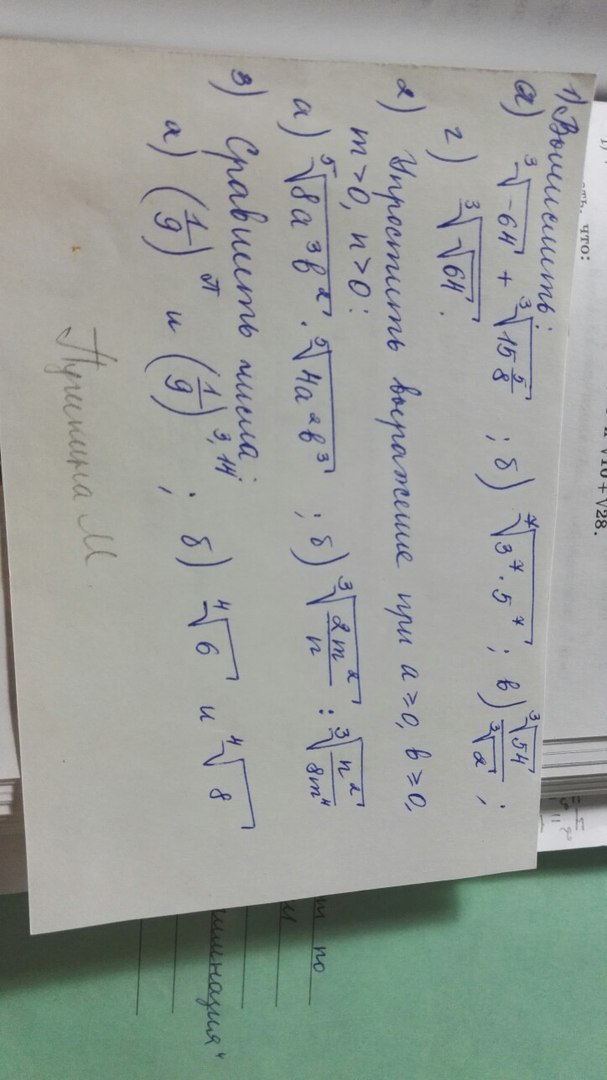 1) Вычислить:
а) ∛-64 + ∛15 5/8 ; б) ⁷√3⁷·5⁷ ; в) ∛54/∛2 ;
г) ∛√64.
2) Упростить выражение при a≥0, b≥0,
m>0, n>0:
а) ⁵√8a³b² · ⁵√4a²b³ ; б) ∛2m²/n : ∛n²/8m⁴
3) Сравнить числа:
а) (1/9)^π и (1/9)^3,14 ; б) ⁴√6 и ⁴√8
что:
√28.
по